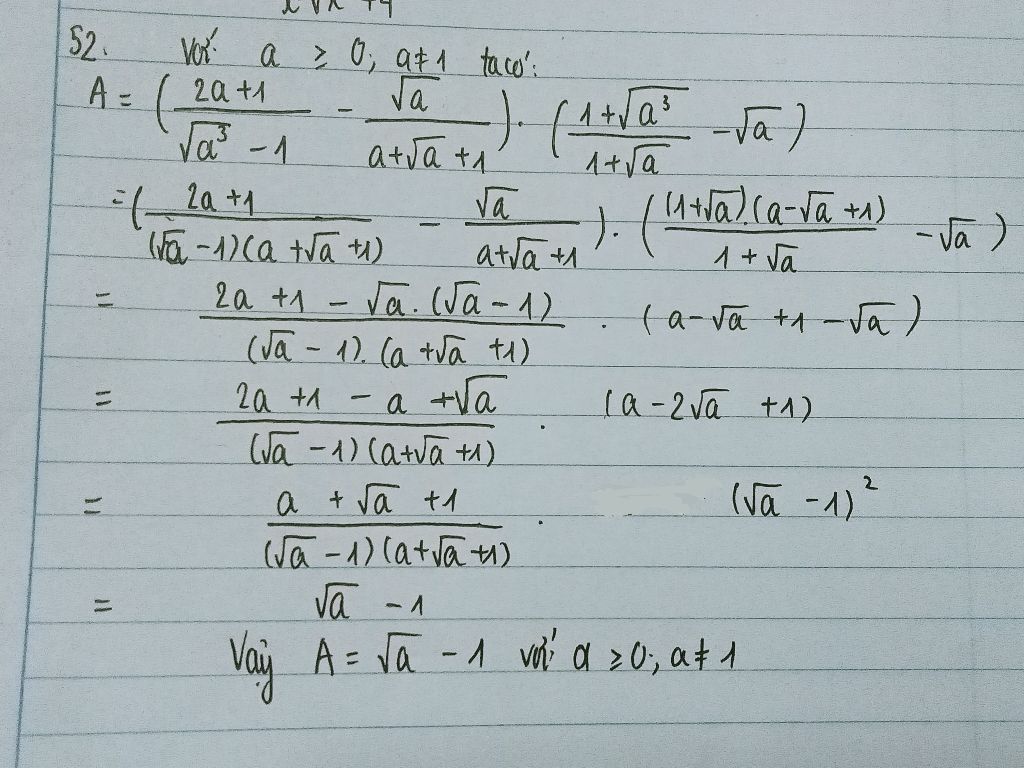 x√x + 4
52. Với a ≥ 0; a ≠ 1 ta có:
A = ( (2a + 1)/(√a³ - 1) - √a/(a + √a + 1) ) . ( (1 + √a³)/(1 + √a) - √a )
= ( (2a + 1)/((√a - 1)(a + √a + 1)) - √a/(a + √a + 1) ) . ( (1 + √a).(a - √a + 1)/(1 + √a) - √a )
= (2a + 1 - √a.(√a - 1))/((√a - 1).(a + √a + 1)) . (a - √a + 1 - √a)
= (2a + 1 - a + √a)/((√a - 1)(a + √a + 1)) . (a - 2√a + 1)
= (a + √a + 1)/((√a - 1)(a + √a + 1)) . (√a - 1)²
= √a - 1
Vậy A = √a - 1 với a ≥ 0; a ≠ 1